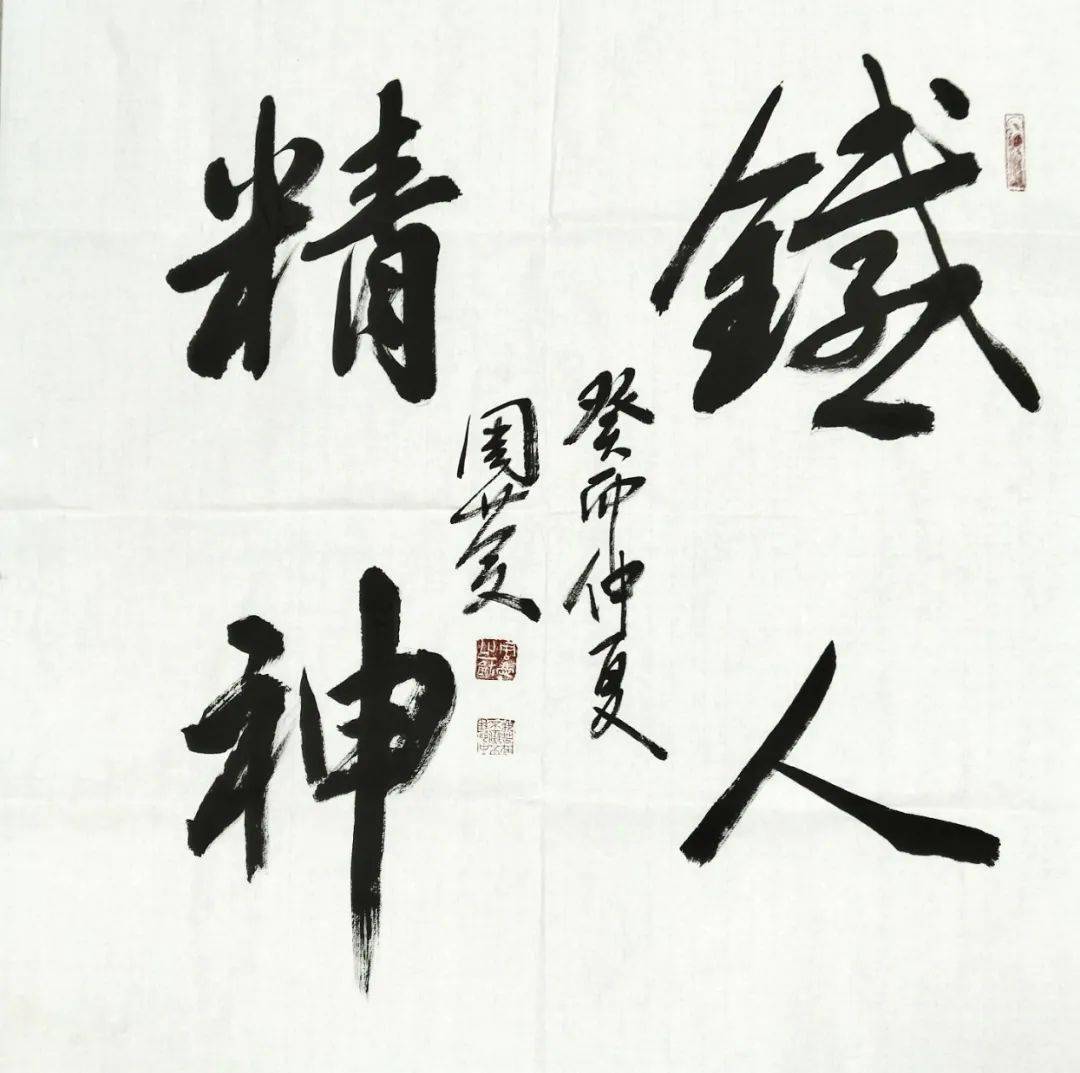 鐵人
精神
癸卯仲夏
周